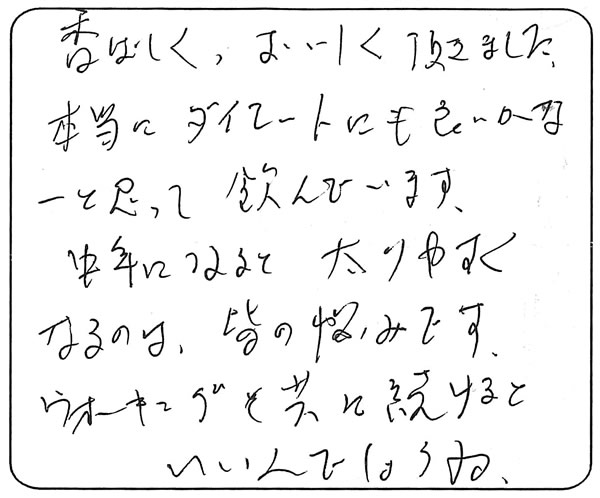 香ばしく、おいしく頂きました。
本当にダイエートにも良いかな
ーと思って飲んでいます。
中年になると太りやすく
なるのは、皆の悩みです。
ウオーキングと共に続けると
いいんでしょうね。